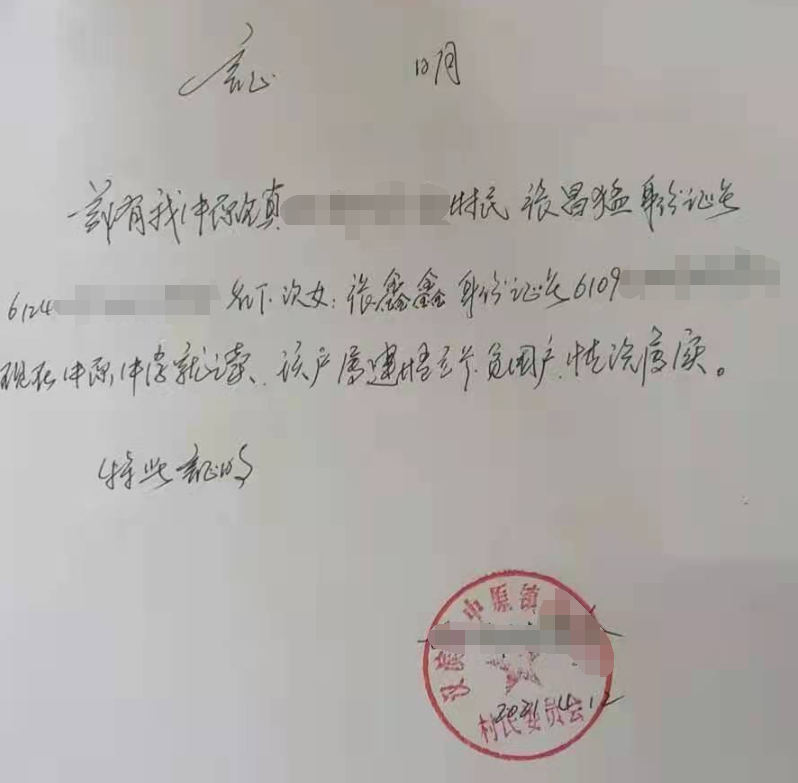 证 明
兹有我中原镇 村民 张昌猛 身份证号
6124 名下次女：张鑫鑫 身份证号 6109
现在中原中学就读、该户属建档立卡贫困户，情况属实。
特此证明
汉 中原镇
2021.4.12
村民委员会